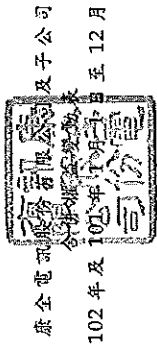 康全電訊股份有限公司及子公司
合併權益變動表
102 年及 101 年 1 月 1 日至 12 月